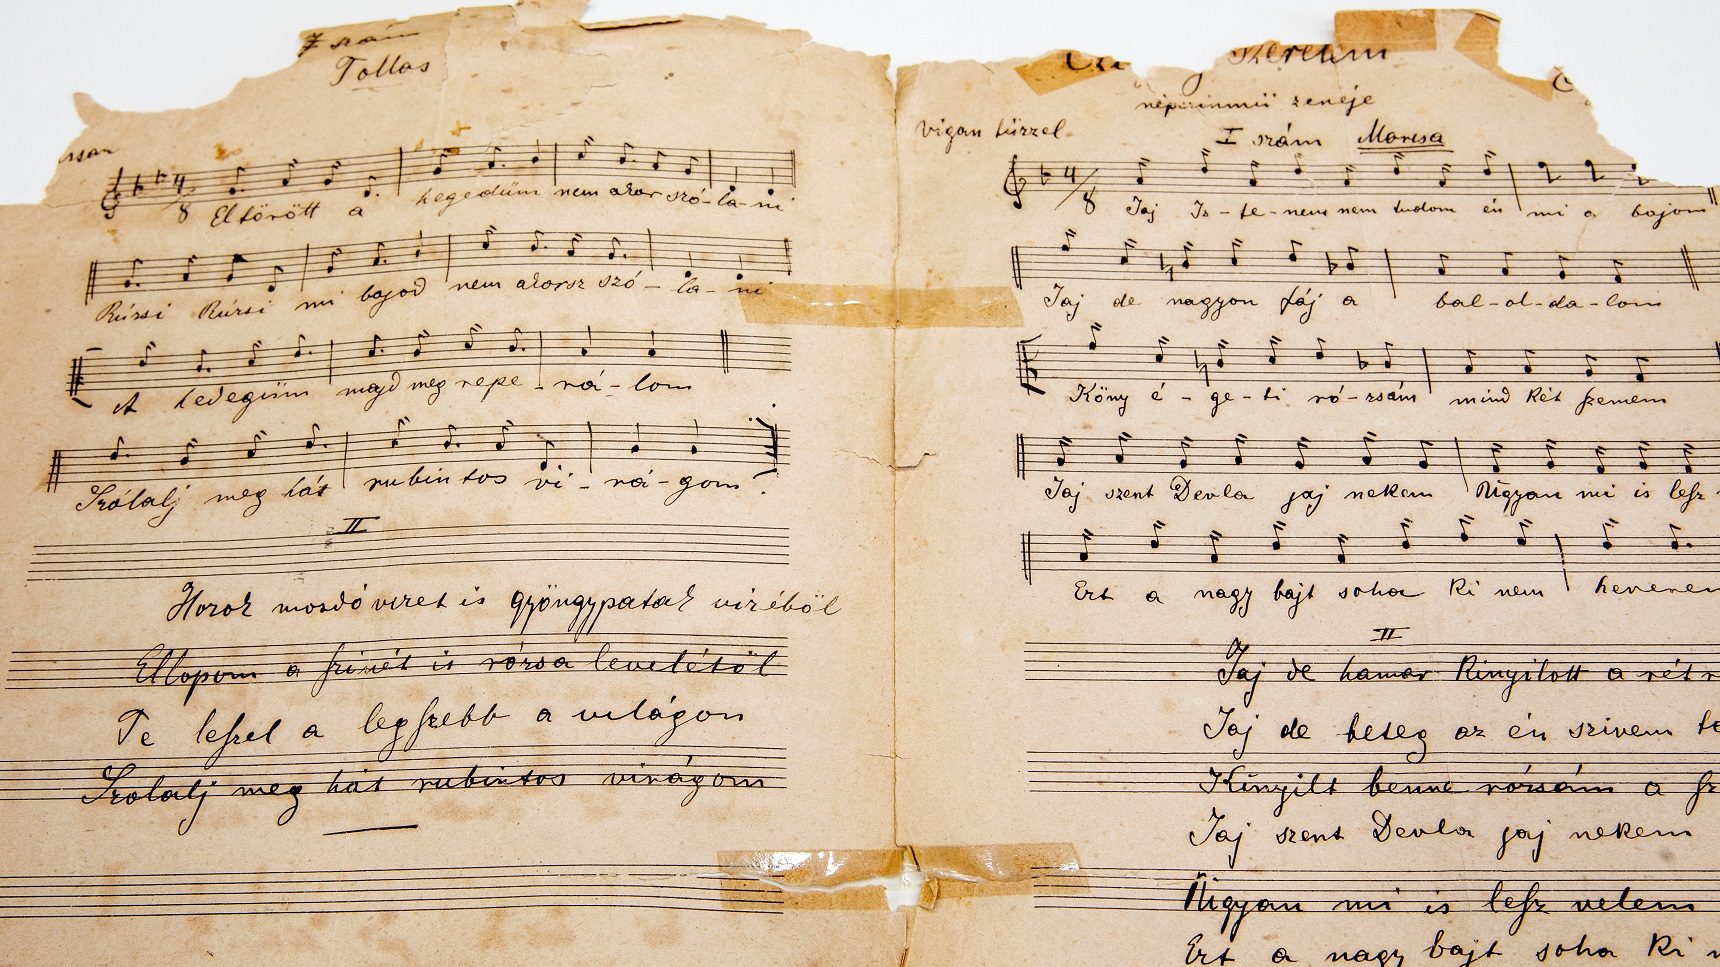 7 szám
Tollas
4/8
Eltörött a hegedűm nem akar szó-la-ni
Rúzsi Rúzsi mi bajod nem akarsz szó-la-ni
A hedegüm majd meg repe-rá-lom
Szólalj meg hát rubintos vi-rá-gom!
II
mosdóvizet is gyöngypatak vizéböl
Ellopom a szinét is rózsa levelétöl
Te leszel a legszebb a világon
Szólalj meg hát rubintos virágom
szeretem
népszinmü zeneje
vígan tüzzel
I szám Marcsa
4/8
Jaj Is-te-nem nem tudom én mi a bajom
Jaj de nagyon fáj a bal-ol-da-lom
Köny é-ge-ti ró-zsám mind két szemem
Jaj szent Devla jaj nekem Ugyan mi is lesz
Ezt a nagy bajt soha ki nem heverem
II
Jaj de hamar kinyilott a rét
Jaj de beteg az én szivem
Kinyilt benne rózsám a
Jaj szent Devla jaj nekem
Ugyan mi is lesz velem
Ezt a nagy bajt soha ki